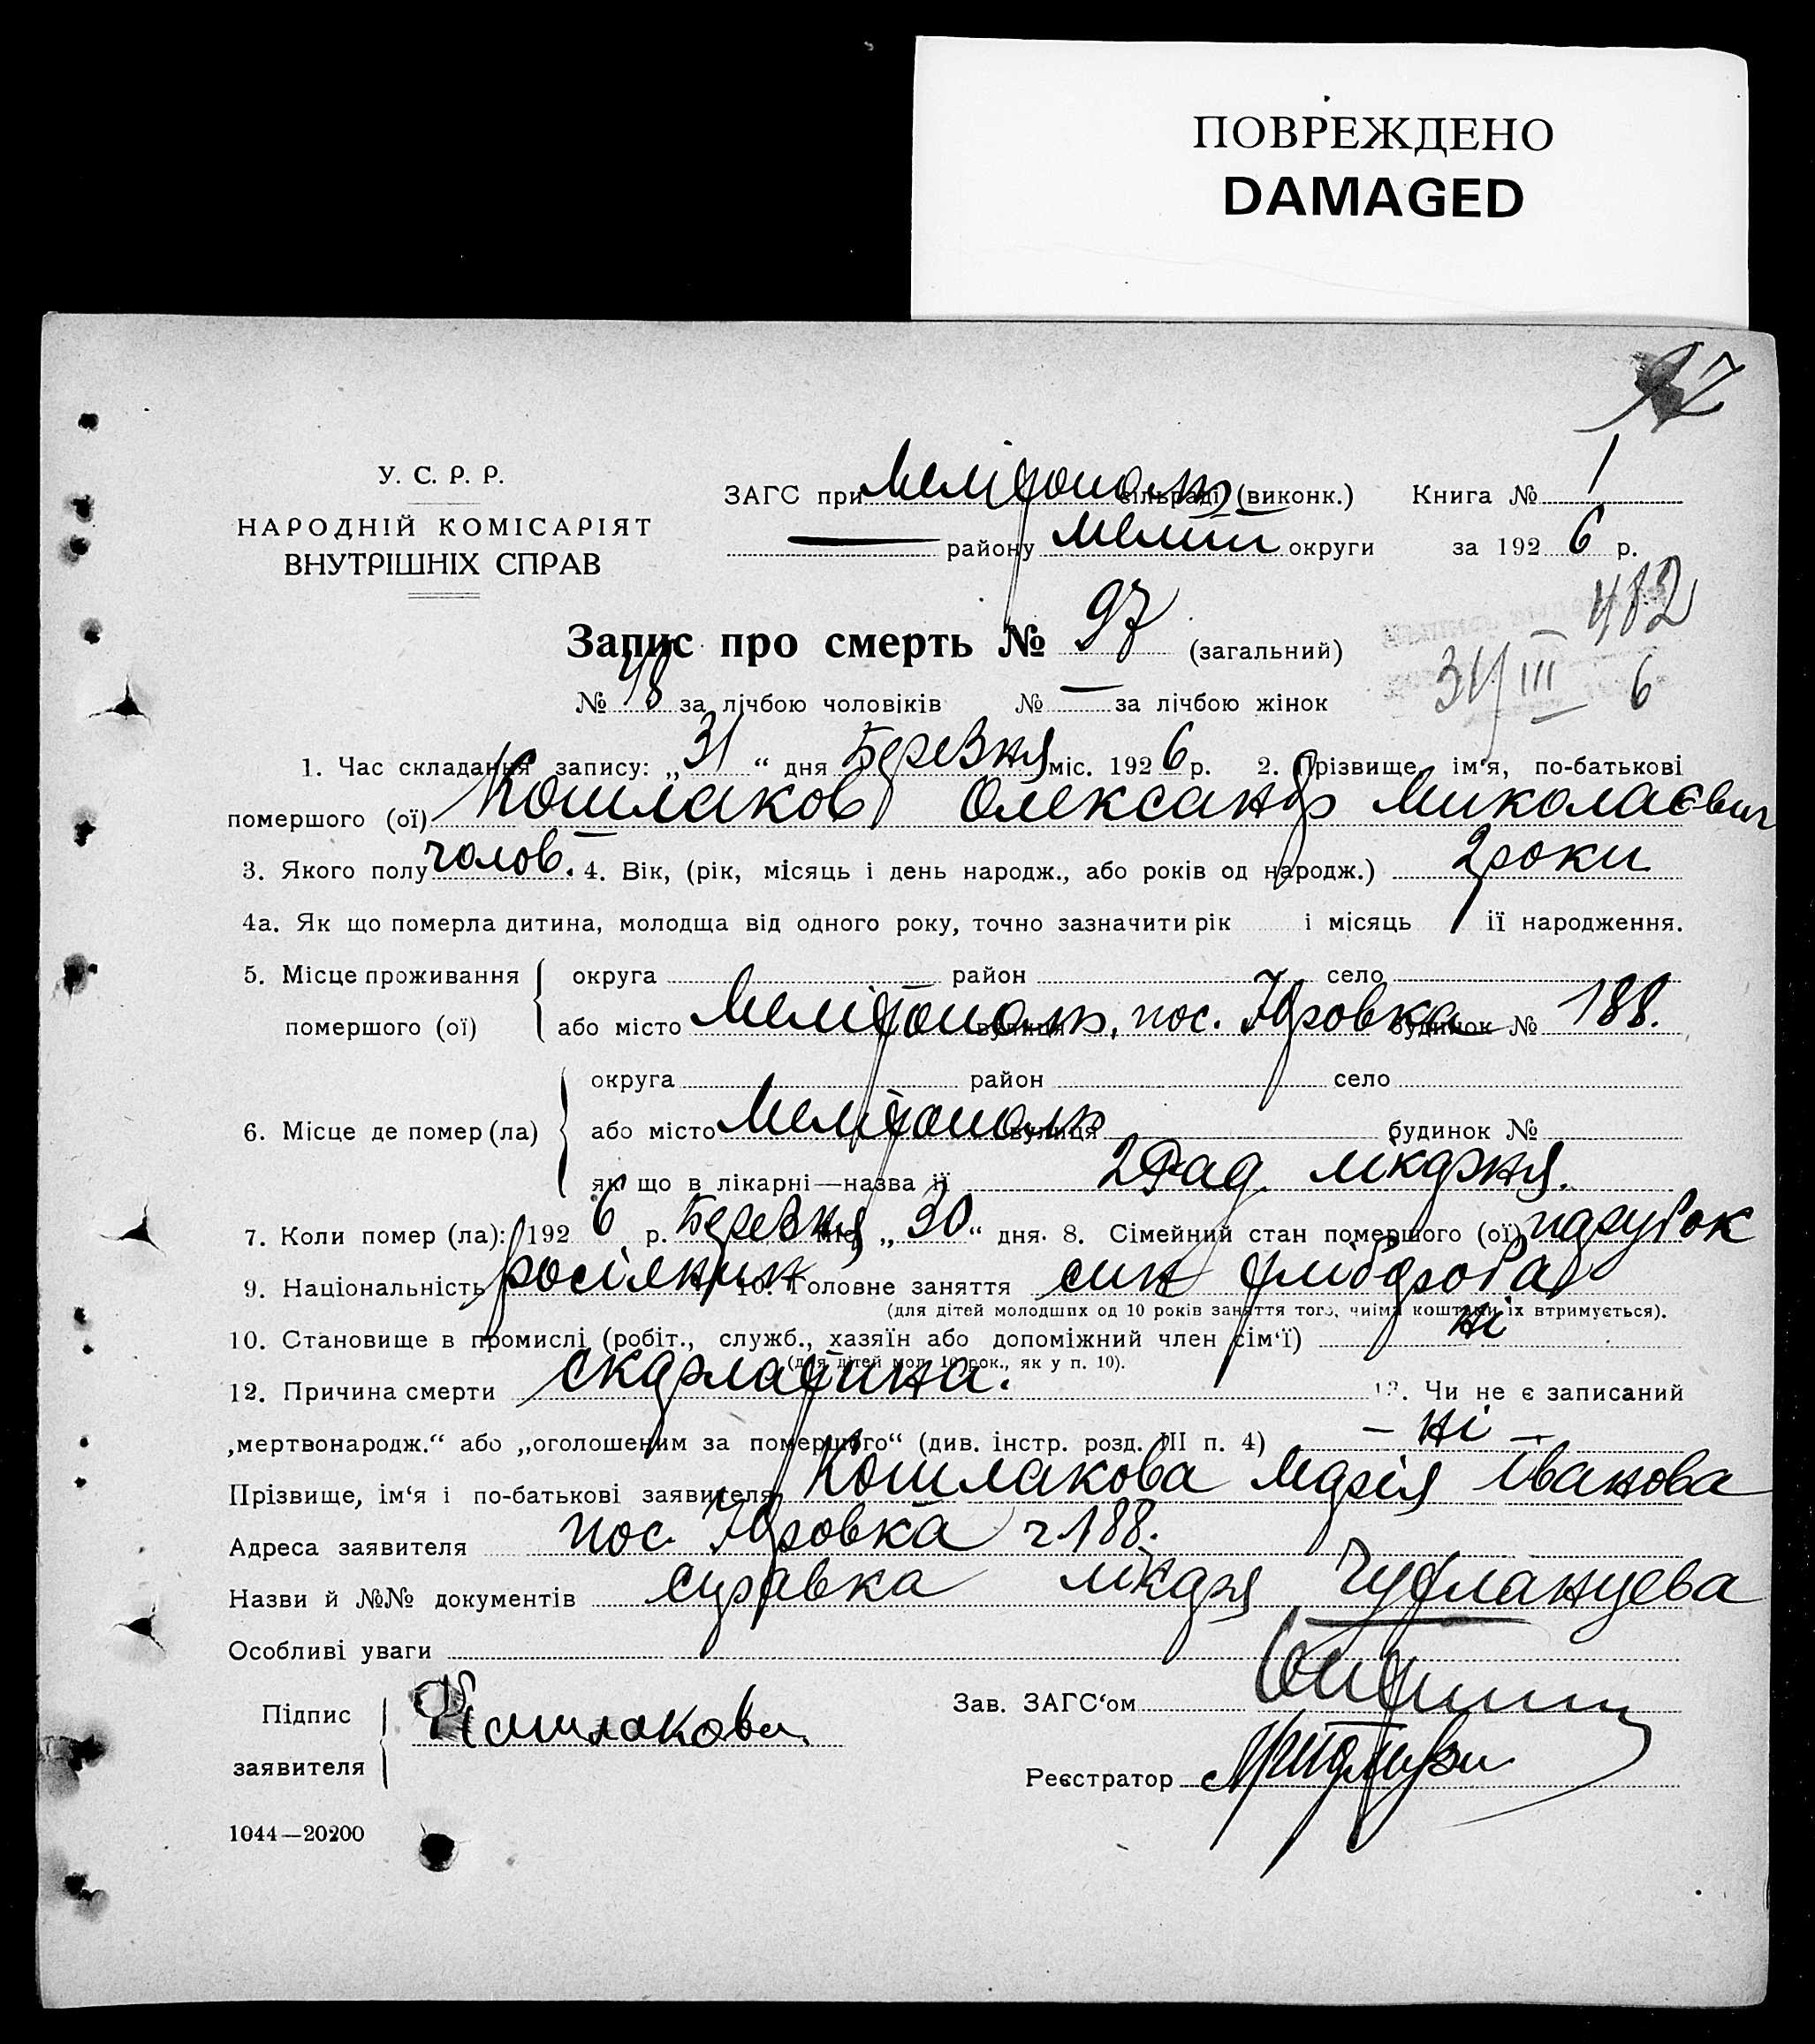 ПОВРЕЖДЕНО
DAMAGED
97
У. С. Р. Р.
НАРОДНІЙ КОМІСАРІЯТ
ВНУТРІШНІХ СПРАВ
ЗАГС при Мелітополь сільраді (виконк.) Книга № 1
— району Меліт округи за 192 6 р.
482
Запис про смерть № 97 (загальний)
31/III 6
№ 48 за лічбою чоловіків № — за лічбою жінок
1. Час складання запису: „ 31 “ дня Березня міс. 192 6 р. 2. Прізвище, ім‘я, по-батькові
помершого (ої) Кошлаков Олександр Миколаєвич
3. Якого полу чолов. 4. Вік, (рік, місяць і день народж., або років од народж.) 2 роки
4а. Як що померла дитина, молодща від одного року, точно зазначити рік і місяць її народження.
5. Місце проживання округа район село
помершого (ої) або місто Мелітополь, вулиця пос. Юровка будинок № 188.
округа район село
6. Місце де помер (ла) або місто Мелітополь вулиця будинок №
як що в лікарні—назва її 2 Рад. лікарня.
7. Коли помер (ла): 192 6 р. Березня міс. „ 30 “ дня. 8. Сімейний стан помершого (ої) парубок
9. Національність росіянин 10. Головне заняття син хлібороба
(для дітей молодших од 10 років заняття того, чиїми коштами їх втримується).
10. Становище в промислі (робіт., служб., хазяїн або допоміжний член сім‘ї) ні
(для дітей мол. 10 рок., як у п. 10).
12. Причина смерти скарлатина. 13. Чи не є записаний
„мертвонародж.“ або „оголошеним за помершого“ (див. інстр. розд. III п. 4) – ні –
Прізвище, ім‘я і по-батькові заявителя Кошлакова Марія Іванова
Адреса заявителя пос. Юровка ч 188.
Назви й №№ документів справка лікаря
Особливі уваги
Підпис
заявителя
Кошлакова
Зав. ЗАГС‘ом
Реєстратор
1044—20200